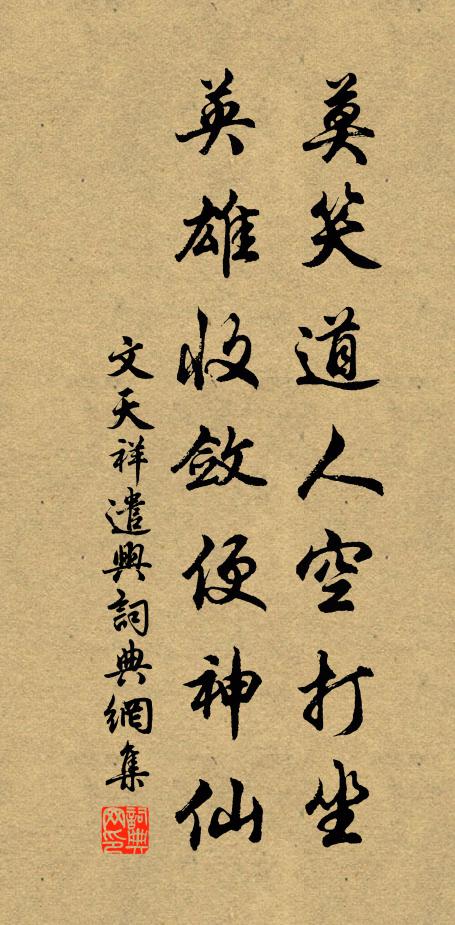 莫笑道人空打坐
英雄收斂便神仙
文天祥遣興詞典網集
詞典网印